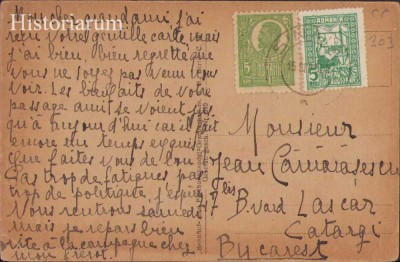 Historiarum
Mon cher grand ami, j'ai
reçu votre gentille carte mais
j'ai bien, bien regretté que
vous ne soyez pas venu nous
voir. Les bienfaits de votre
passage ami se voient jus
qu'à aujourd'hui car il fait
encore un temps exquis
Que faites vous de bon
Pas trop de fatigues, pas
trop de politique, j'espère
Nous rentrons samedi
mais je repars bien
vite à la campagne chez
mon
Monsieur
Jean Cămărășescu
7 B.vard Lascar
Catargi
Bucarest
ROMANIA
5
5
103